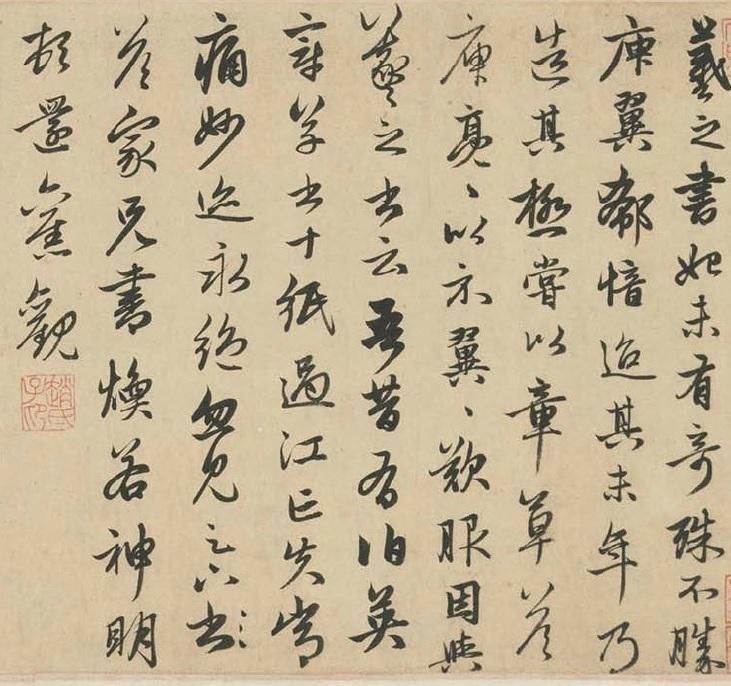 羲之書始未有奇殊不勝
庾翼郗愔迨其末年乃
造其極嘗以章草答
庾亮〻以示翼〻歎服因與
羲之書云吾昔有伯英
章草書十紙過江亡失常
痛妙迹永絕忽見足下書
答家兄書煥若神明
頓還舊觀
趙氏子昂